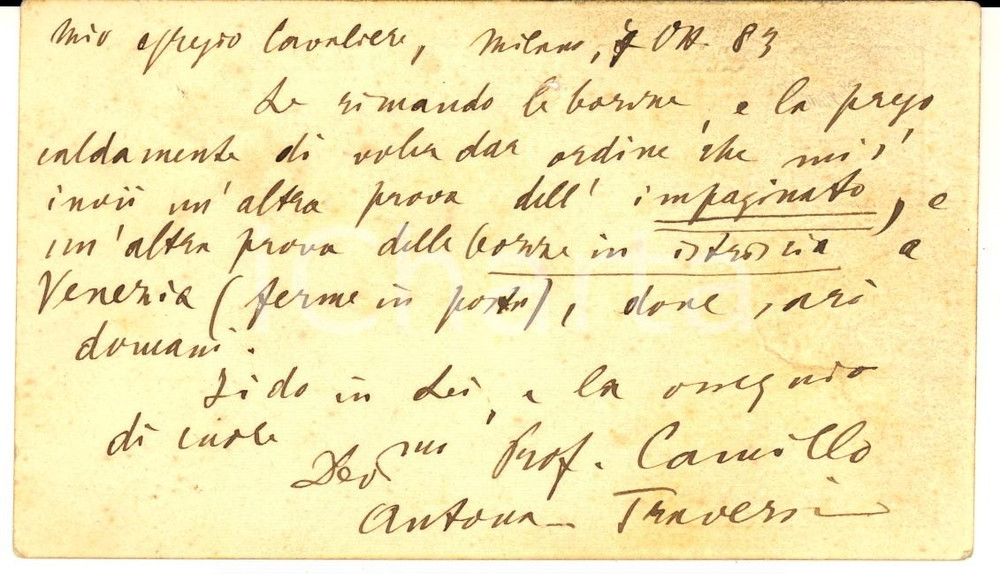 Mio egregio Cavaliere, Milano, 7 Ott. 83
Le rimando le bozze, e la prego
caldamente di voler dar ordine che mi si
invii un'altra prova dell' impaginato, e
un'altra prova delle bozze in istriscia a
Venezia (ferme in posta), dove sarò
domani.
Fido in Lei, e la ossequio
di cuore
Devmo Prof. Camillo
Antona Traversi